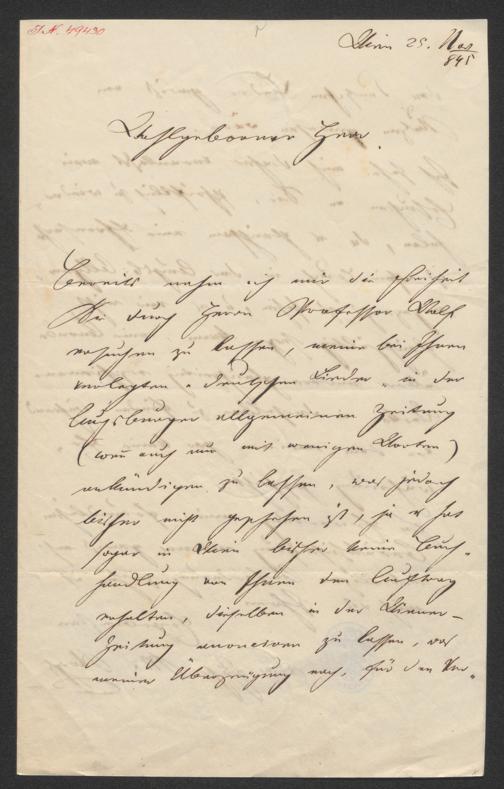 I.N. 49430
Wien 25. Nov
845
Wohlgeborner Herr.
Bereits nahm ich mir die Freiheit
Sie durch Herrn Professor Wolf
ersuchen zu lassen, meine bei Ihnen
verlegten "deutschen Lieder" in der
Augsburger allgemeinen Zeitung
(wen̄ auch nur mit wenigen Worten)
ankündigen zu lassen, was jedoch
bisher nicht geschehen ist, ja es hat
sogar in Wien bisher keine Buch-
handlung von Ihnen den Auftrag
erhalten, dieselben in der Wiener-
Zeitung anonciren zu lassen, was
meiner Überzeugung nach, für den Ver-